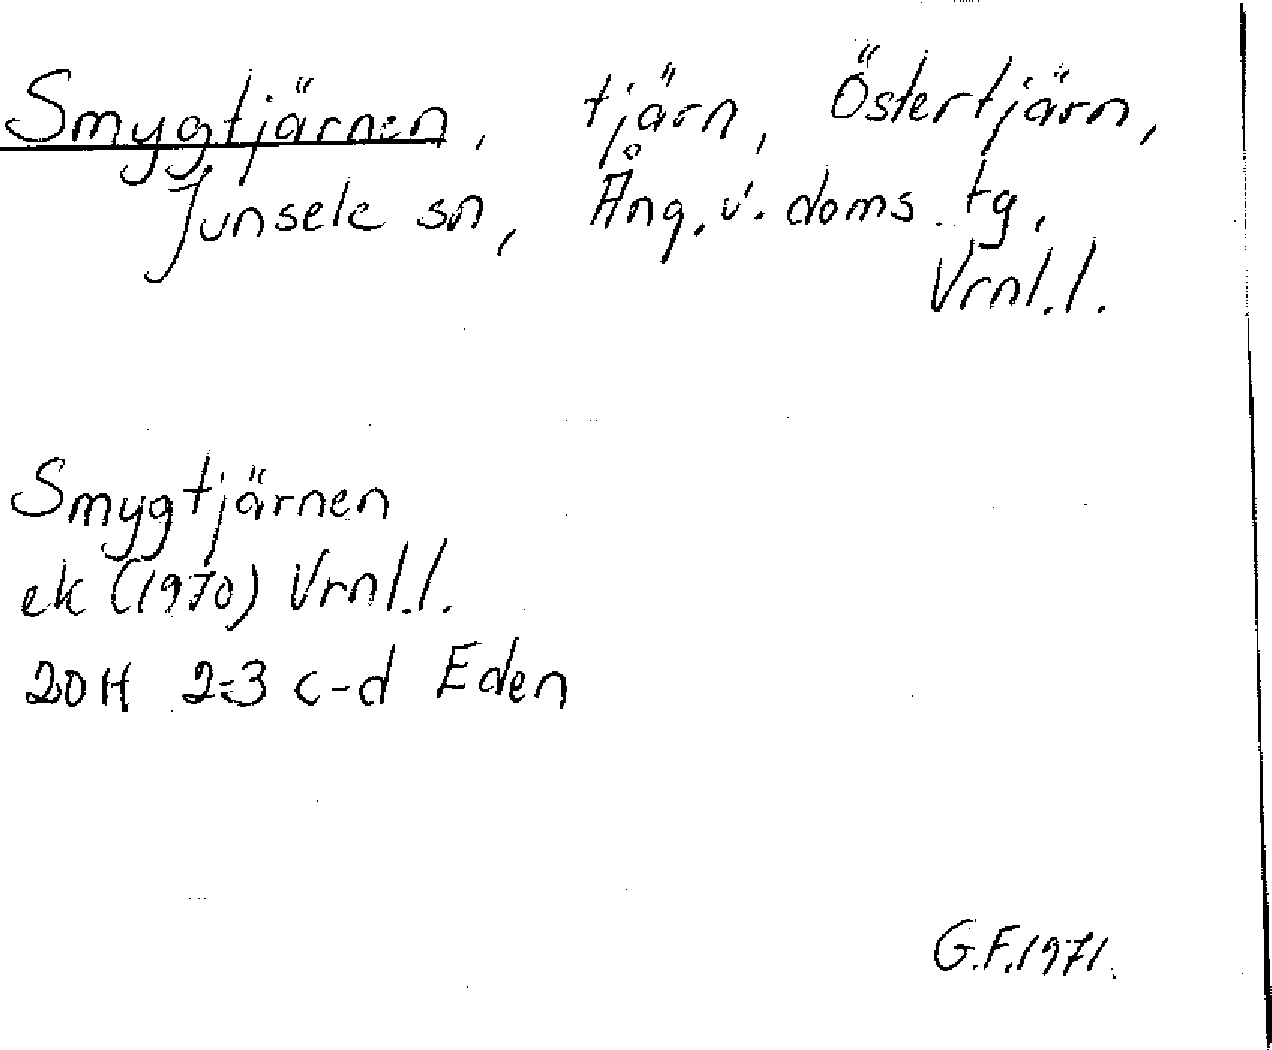 Smygtjärnen, tjärn, Östertjärn,
Junsele sn, Ång. v. doms. tg,
Vrnl.l.
Smygtjärnen
ek (1970) Vrnl.l.
20H 2-3 c-d Eden
G.F.1971.